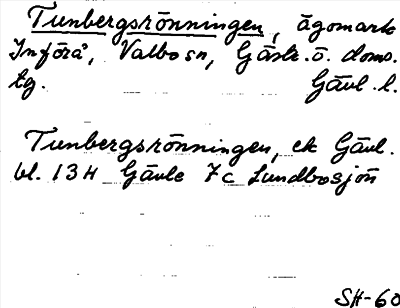 Tunbergsrönningen, ägomark
Införå, Valbo sn, Gästr. ö. doms.
tg. Gävl. l.
Tunbergsrönningen, ek Gävl.
bl. 13H Gävle 7c Lundbosjön
SH-60